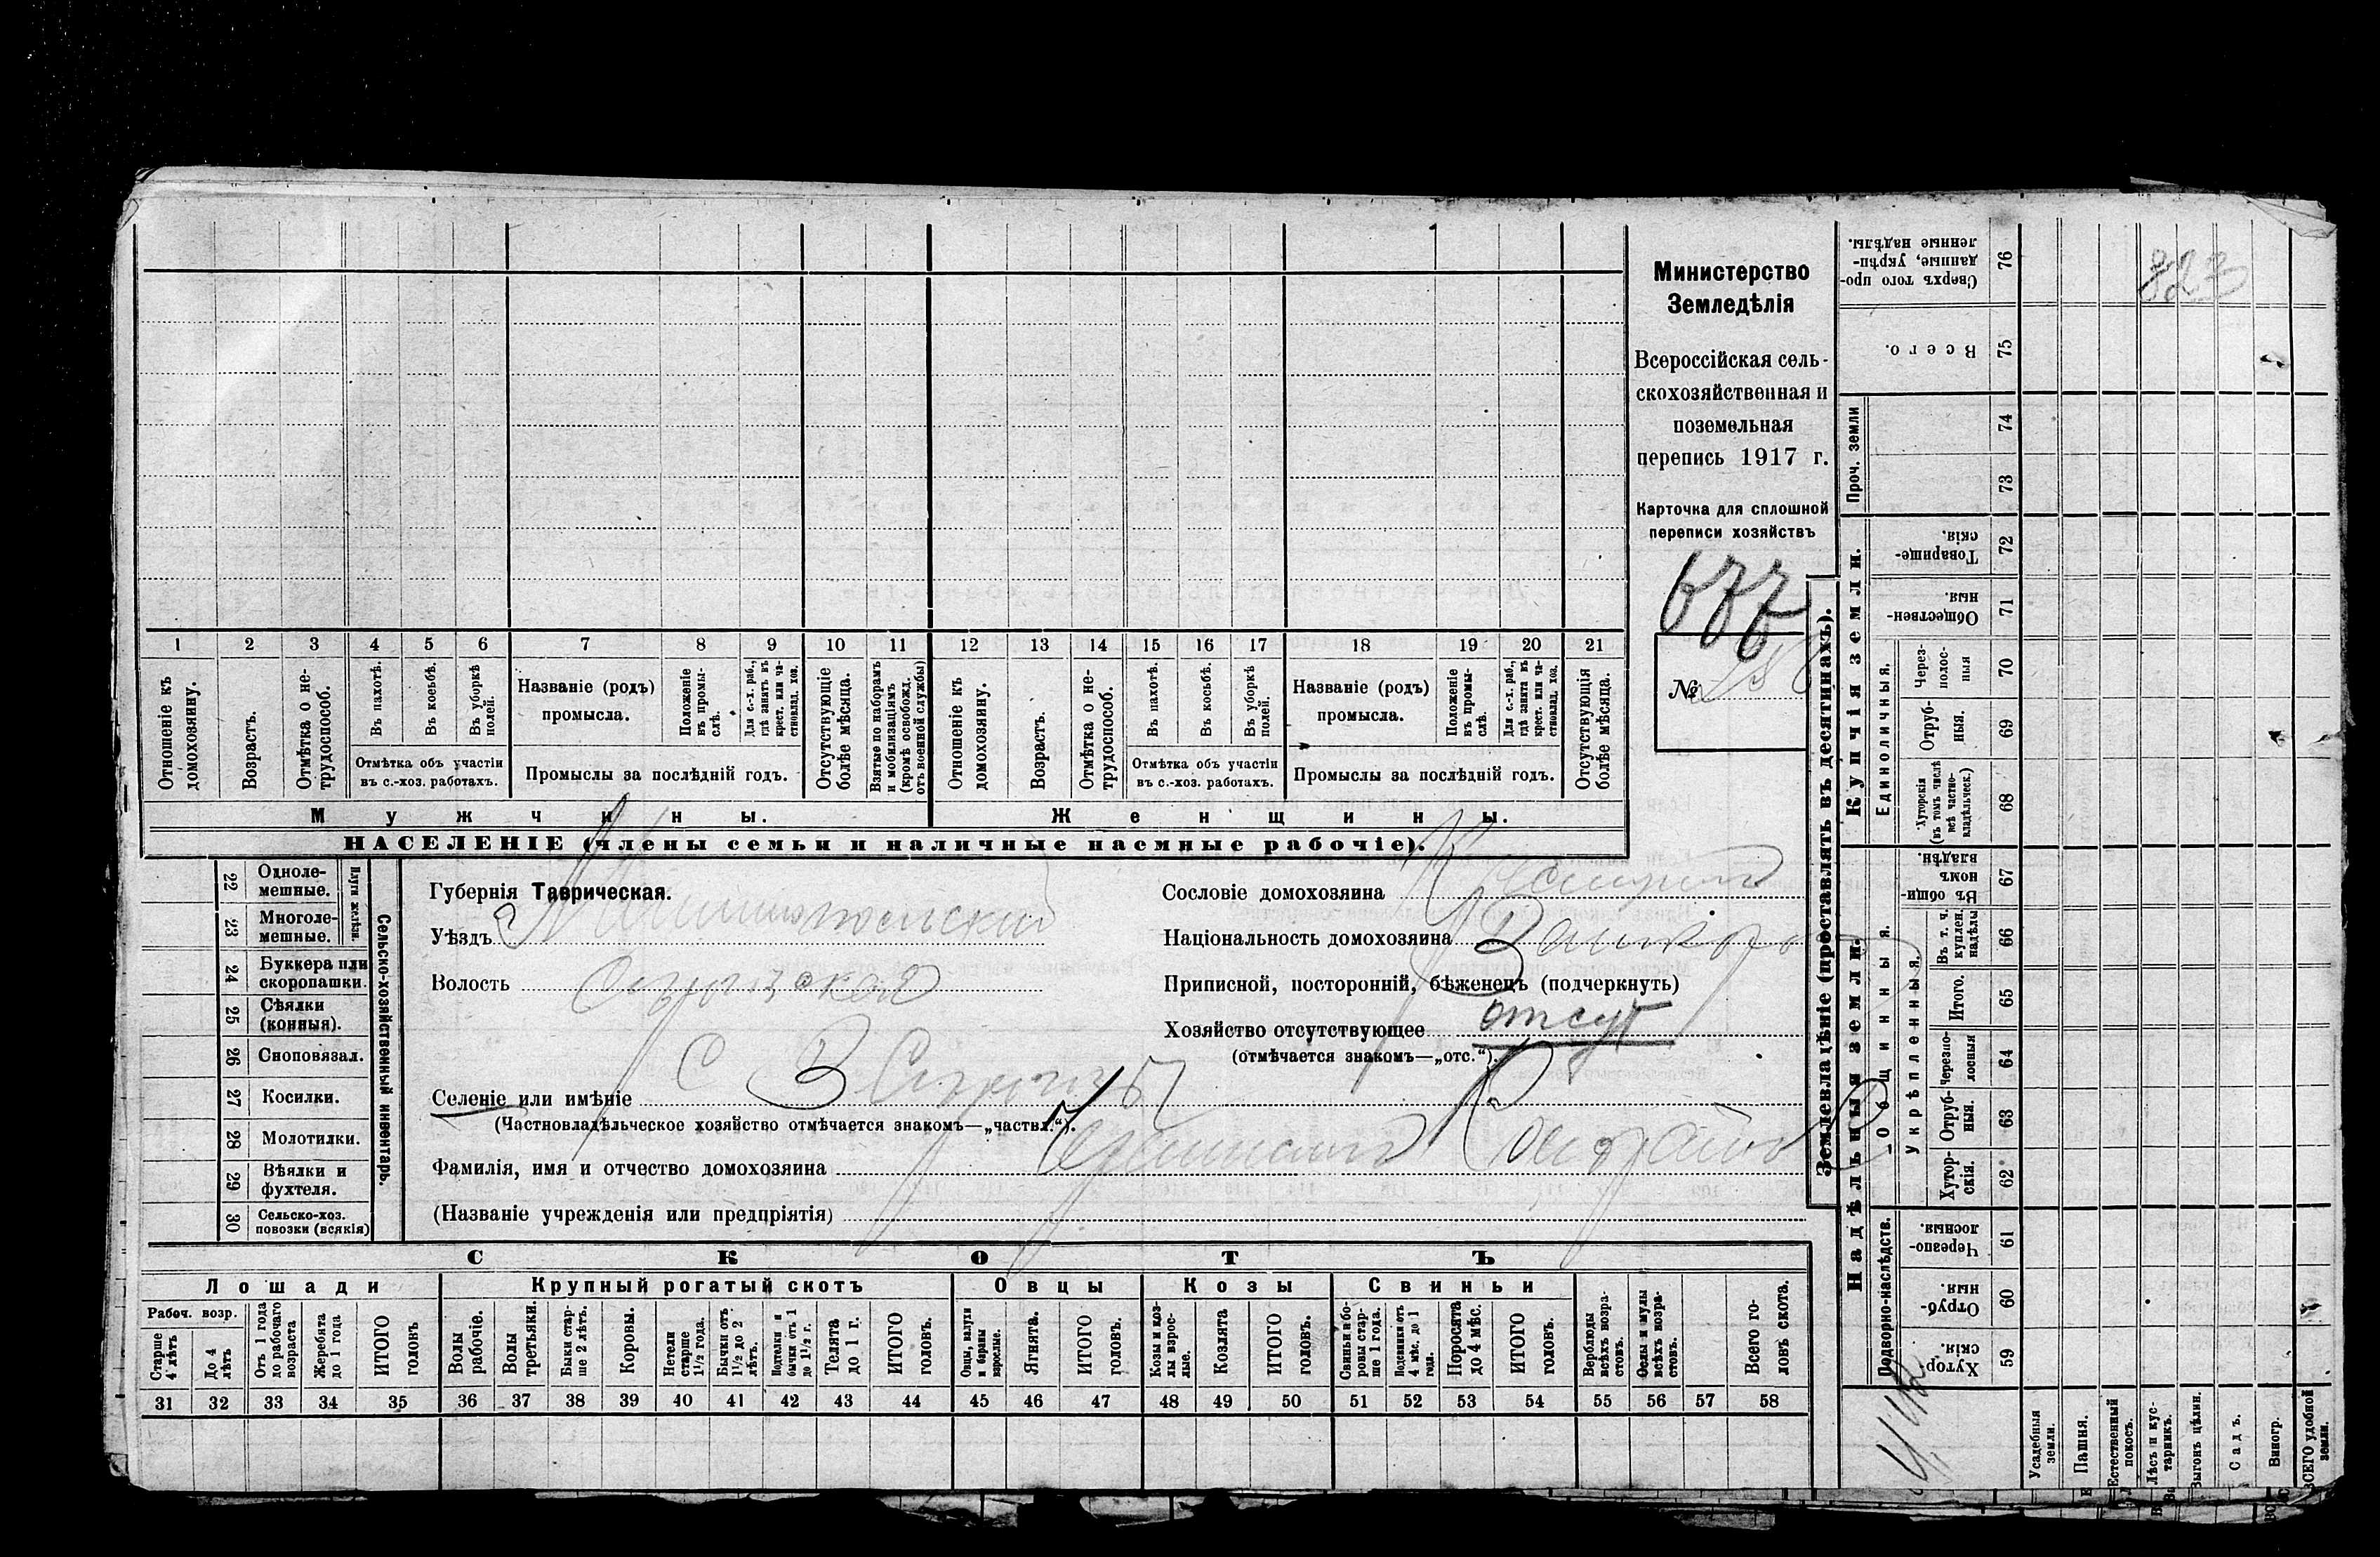 Министерство
Земледѣлія
Всероссійская сель-
скохозяйственная и
поземельная
перепись 1917 г.
Карточка для сплошной
переписи хозяйствъ
677
№
1 2 3 4 5 6 7 8 9 10 11 12 13 14 15 16 17 18 19 20 21
Отношеніе къ домохозяину.
Возрастъ.
Отмѣтка о не-трудоспособ.
Въ пахотѣ.
Въ косьбѣ.
Въ уборкѣ полей.
Отмѣтка объ участіи
въ с.-хоз. работахъ.
Названіе (родъ)
промысла.
Положеніе въ промы-слѣ.
Для с.-х. раб., гдѣ занятъ въ крест. или ча-стновлад. хоз.
Промыслы за послѣдній годъ.
Отсутствующіе болѣе мѣсяца.
Взятые по наборамъ и мобилизаціямъ (кромѣ освобожд. отъ военной службы)
Отношеніе къ домохозяину.
Возрастъ.
Отмѣтка о не-трудоспособ.
Въ пахотѣ.
Въ косьбѣ.
Въ уборкѣ полей.
Отмѣтка объ участіи
въ с.-хоз. работахъ.
Названіе (родъ)
промысла.
Положеніе въ промы-слѣ.
Для с.-х. раб., гдѣ занята въ крест. или ча-стновлад. хоз.
Промыслы за послѣдній годъ.
Отсутствующія болѣе мѣсяца.
Мужчины.
Женщины.
НАСЕЛЕНІЕ (члены семьи и наличные наемные рабочіе).
Сельско-хозяйственный инвентарь.
Плуги желѣзн.
22 Одноле-мешные.
23 Многоле-мешные.
24 Буккера или скоропашки.
25 Сѣялки (конныя).
26 Сноповязал.
27 Косилки.
28 Молотилки.
29 Вѣялки и фухтеля.
30 Сельско-хоз. повозки (всякія)
Губернія Таврическая.
Уѣздъ Мелитопольский
Волость
Селеніе или имѣніе С В
(Частновладѣльческое хозяйство отмѣчается знакомъ—„частвл.“).
Фамилія, имя и отчество домохозяина
(Названіе учрежденія или предпріятія)
Сословіе домохозяина
Національность домохозяина
Приписной, посторонній, бѣженецъ (подчеркнуть)
Хозяйство отсутствующее отсут
(отмѣчается знакомъ—„отс.“).
СКОТЪ
Лошади
Крупный рогатый скотъ
Овцы
Козы
Свиньи
Рабоч. возр.
Старше 4 лѣтъ
До 4 лѣтъ
Отъ 1 года до рабочаго возраста
Жеребята до 1 года
ИТОГО головъ
Волы рабочіе.
Волы третьяки.
Быки стар-ше 2 лѣтъ.
Коровы.
Нетели старше 1½ года.
Бычки отъ 1½ до 2 лѣтъ.
Подтелки и бычки отъ 1 до 1½ г.
Телята до 1 г.
ИТОГО головъ.
Овцы, валухи и бараны взрослые.
Ягнята.
ИТОГО головъ.
Козы и коз-лы взрос-лые.
Козлята
ИТОГО головъ.
Свиньи и бо-ровы стар-ше 1 года.
Подсвинки отъ 4 мѣс. до 1 года.
Поросята до 4 мѣс.
ИТОГО головъ.
Верблюды всѣхъ возра-стовъ.
Ослы и мулы всѣхъ возра-стовъ.
Всего го-ловъ скота.
31 32 33 34 35 36 37 38 39 40 41 42 43 44 45 46 47 48 49 50 51 52 53 54 55 56 57 58
Землевладѣніе (проставлять въ десятинахъ).
Надѣльныя земли.
Купчія земли.
Проч. земли
Подворно-наслѣдств.
Общинныя.
Укрѣпленныя.
Единоличныя.
Сверхъ того про-данные, укрѣп-ленные надѣлы. 76
Всего. 75
74
73
Товарище-скія. 72
Обществен-ныя. 71
Через-полос-ныя 70
Отруб-ныя. 69
Хуторскія (въ томъ числѣ всѣ частно-владѣльческ.) 68
Въ общи-номъ владѣн. 67
Въ т. ч. куплен. надѣлы 66
Итого. 65
Черезпо-лосныя 64
Отруб-ныя. 63
Хутор-скія. 62
Черезпо-лосныя. 61
Отруб-ныя. 60
Хутор-скія. 59
Усадебныя земли.
Пашня.
Естественный покосъ.
Лѣсъ и кус-тарникъ.
Выгонъ цѣлин.
Садъ.
Виногр.
ВСЕГО удобной земли.
823